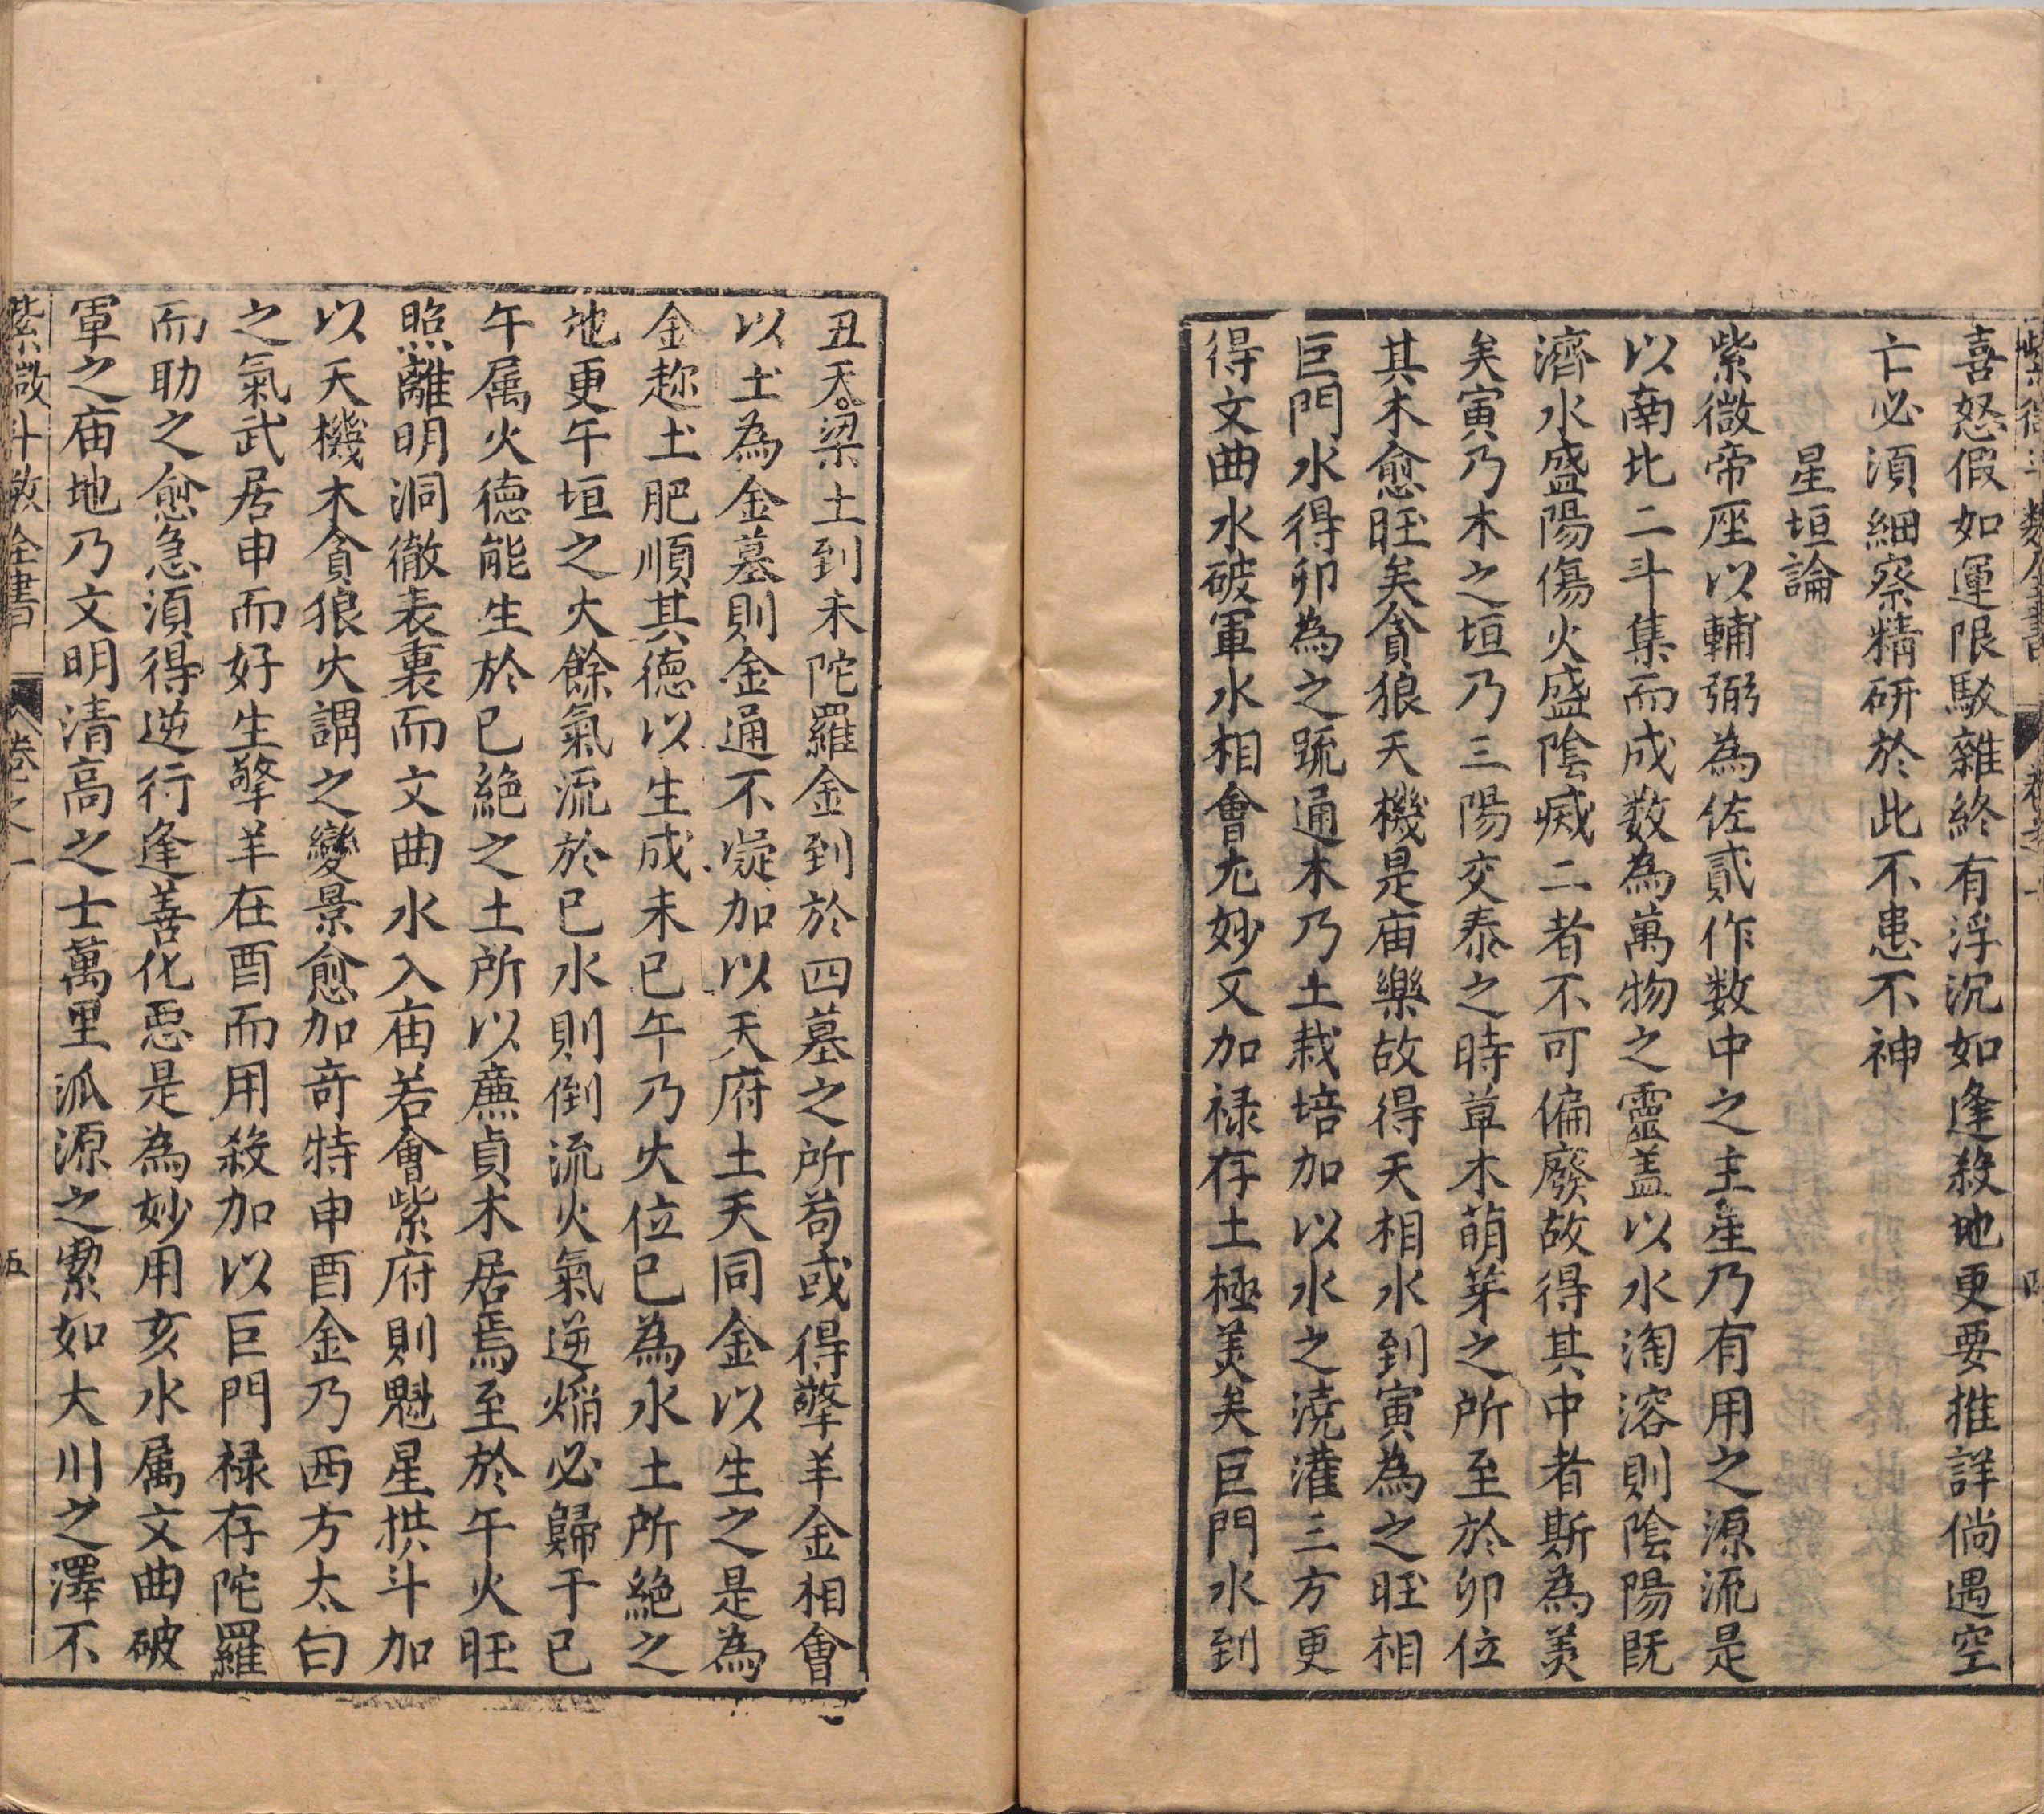 紫微斗數全書 卷之一 四
喜怒假如運限駁雜終有浮沉如逢殺地更要推詳倘遇空
亡必湏細察精研於此不患不神
星垣論
紫微帝座以輔弼為佐貳作数中之主星乃有用之源流是
以南北二斗集而成数為萬物之靈盖以水淘溶則陰陽既
濟水盛陽傷火盛陰滅二者不可偏廢故得其中者斯為美
矣寅乃木之垣乃三陽交泰之時草木萌芽之所至於卯位
其木愈旺矣貪狼天機是庙樂故得天相水到寅為之旺相
巨門水得卯為之疏通木乃土栽培加以水之澆灌三方更
得文曲水破軍水相會尤妙又加禄存土極美矣巨門水到
丑天梁土到未陀羅金到於四墓之所苟或得擎羊金相會
以土為金墓則金通不凝加以天府土天同金以生之是為
金趂土肥順其德以生成未巳午乃火位巳為水土所絶之
地更午垣之火餘氣流於巳水則倒流火氣逆焰必歸于巳
午属火德能生於巳絶之土所以廉貞木居焉至於午火旺
照離明洞徹表裏而文曲水入庙若會紫府則魁星拱斗加
以天機木貪狼火謂之變景愈加竒特申酉金乃西方太白
之氣武居申而好生擎羊在酉而用殺加以巨門禄存陀羅
而助之愈急湏得逆行逢善化恶是為妙用亥水属文曲破
軍之庙地乃文明清高之士萬里派源之潔如大川之澤不
紫微斗数全書 卷之一 五